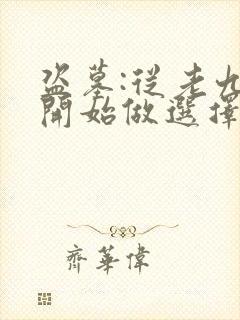 盜墓:從老九
開始做選擇
齊華偉